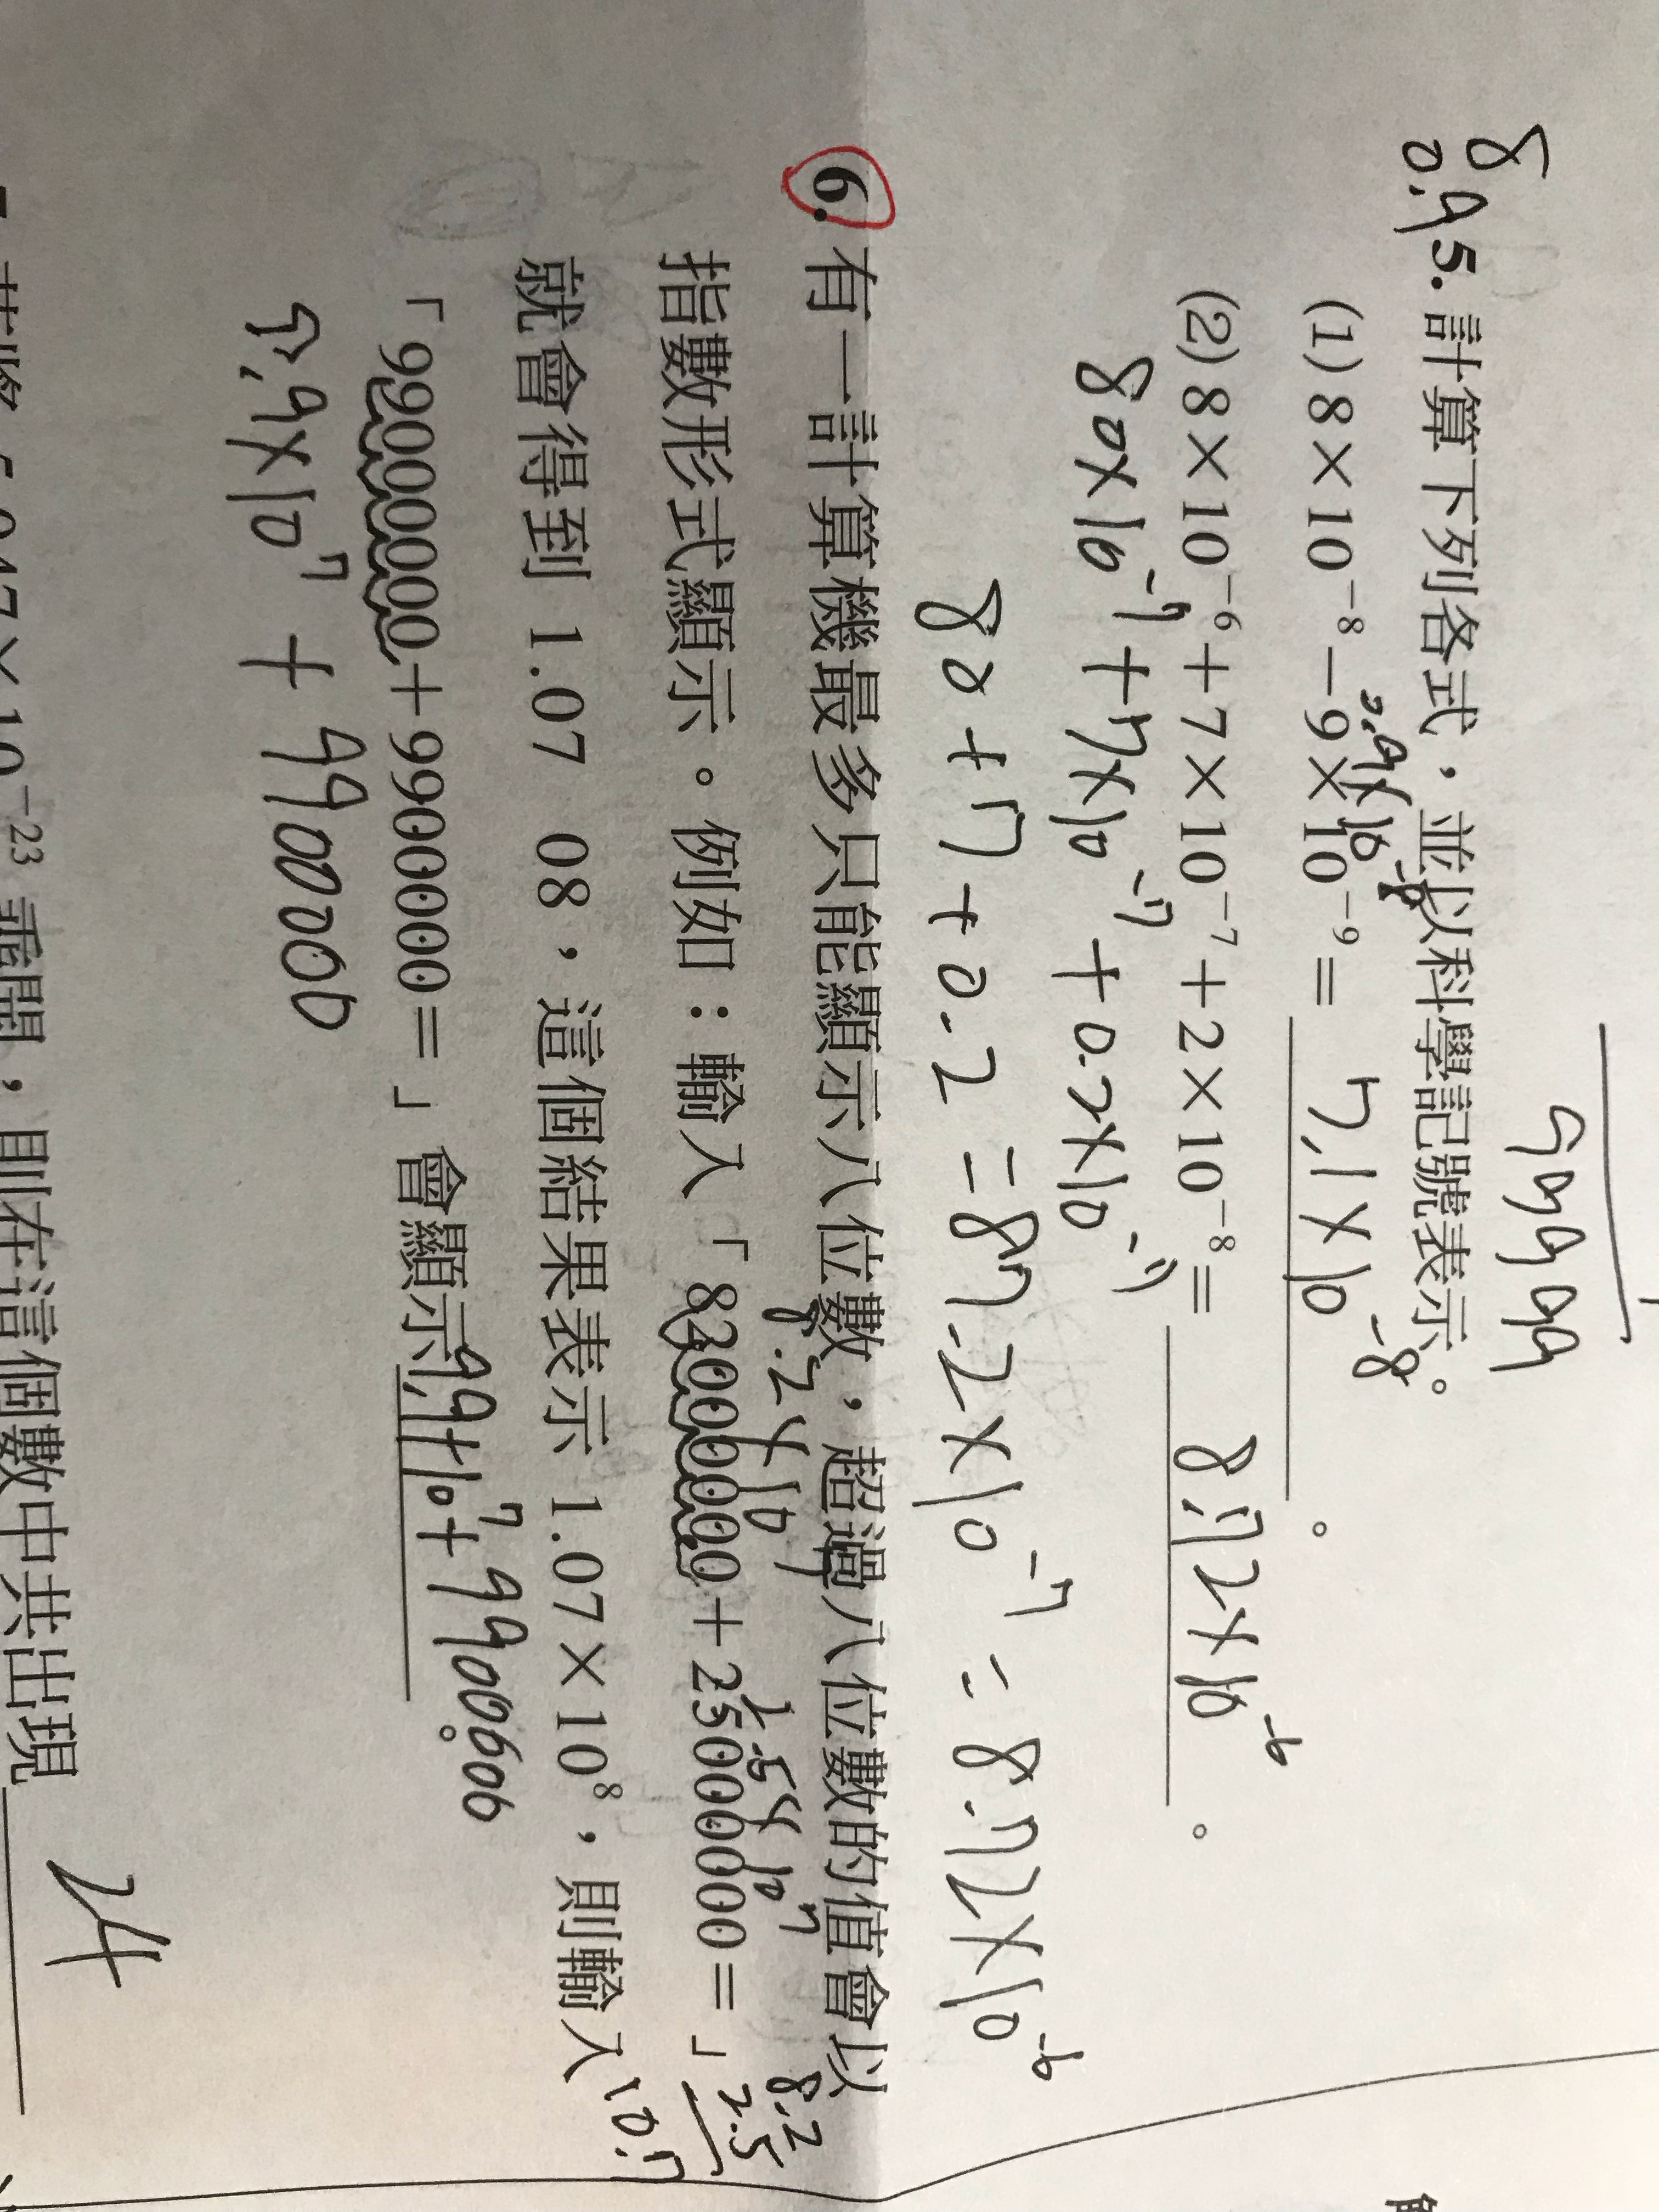 9999
8
0.9
5. 計算下列各式，並以科學記號表示。
0.9×10⁻⁸
(1) 8×10⁻⁸－9×10⁻⁹＝ 7.1×10⁻⁸ 。
(2) 8×10⁻⁶＋7×10⁻⁷＋2×10⁻⁸＝ 8.72×10⁻⁶ 。
80×10⁻⁷+7×10⁻⁷+0.2×10⁻⁷
80+7+0.2=87.2×10⁻⁷=8.72×10⁻⁶
6. 有一計算機最多只能顯示八位數，超過八位數的值會以
8.2×10⁷ 2.5×10⁷ 8.2
指數形式顯示。例如：輸入「82000000＋25000000＝」 2.5
就會得到 1.07 08，這個結果表示 1.07×10⁸，則輸入 10.7
「99000000＋9900000＝」會顯示 9.9×10⁷+9900000 。
9.9×10⁷+9900000
×10⁻²³ 乘開，則在這個數中共出現 24